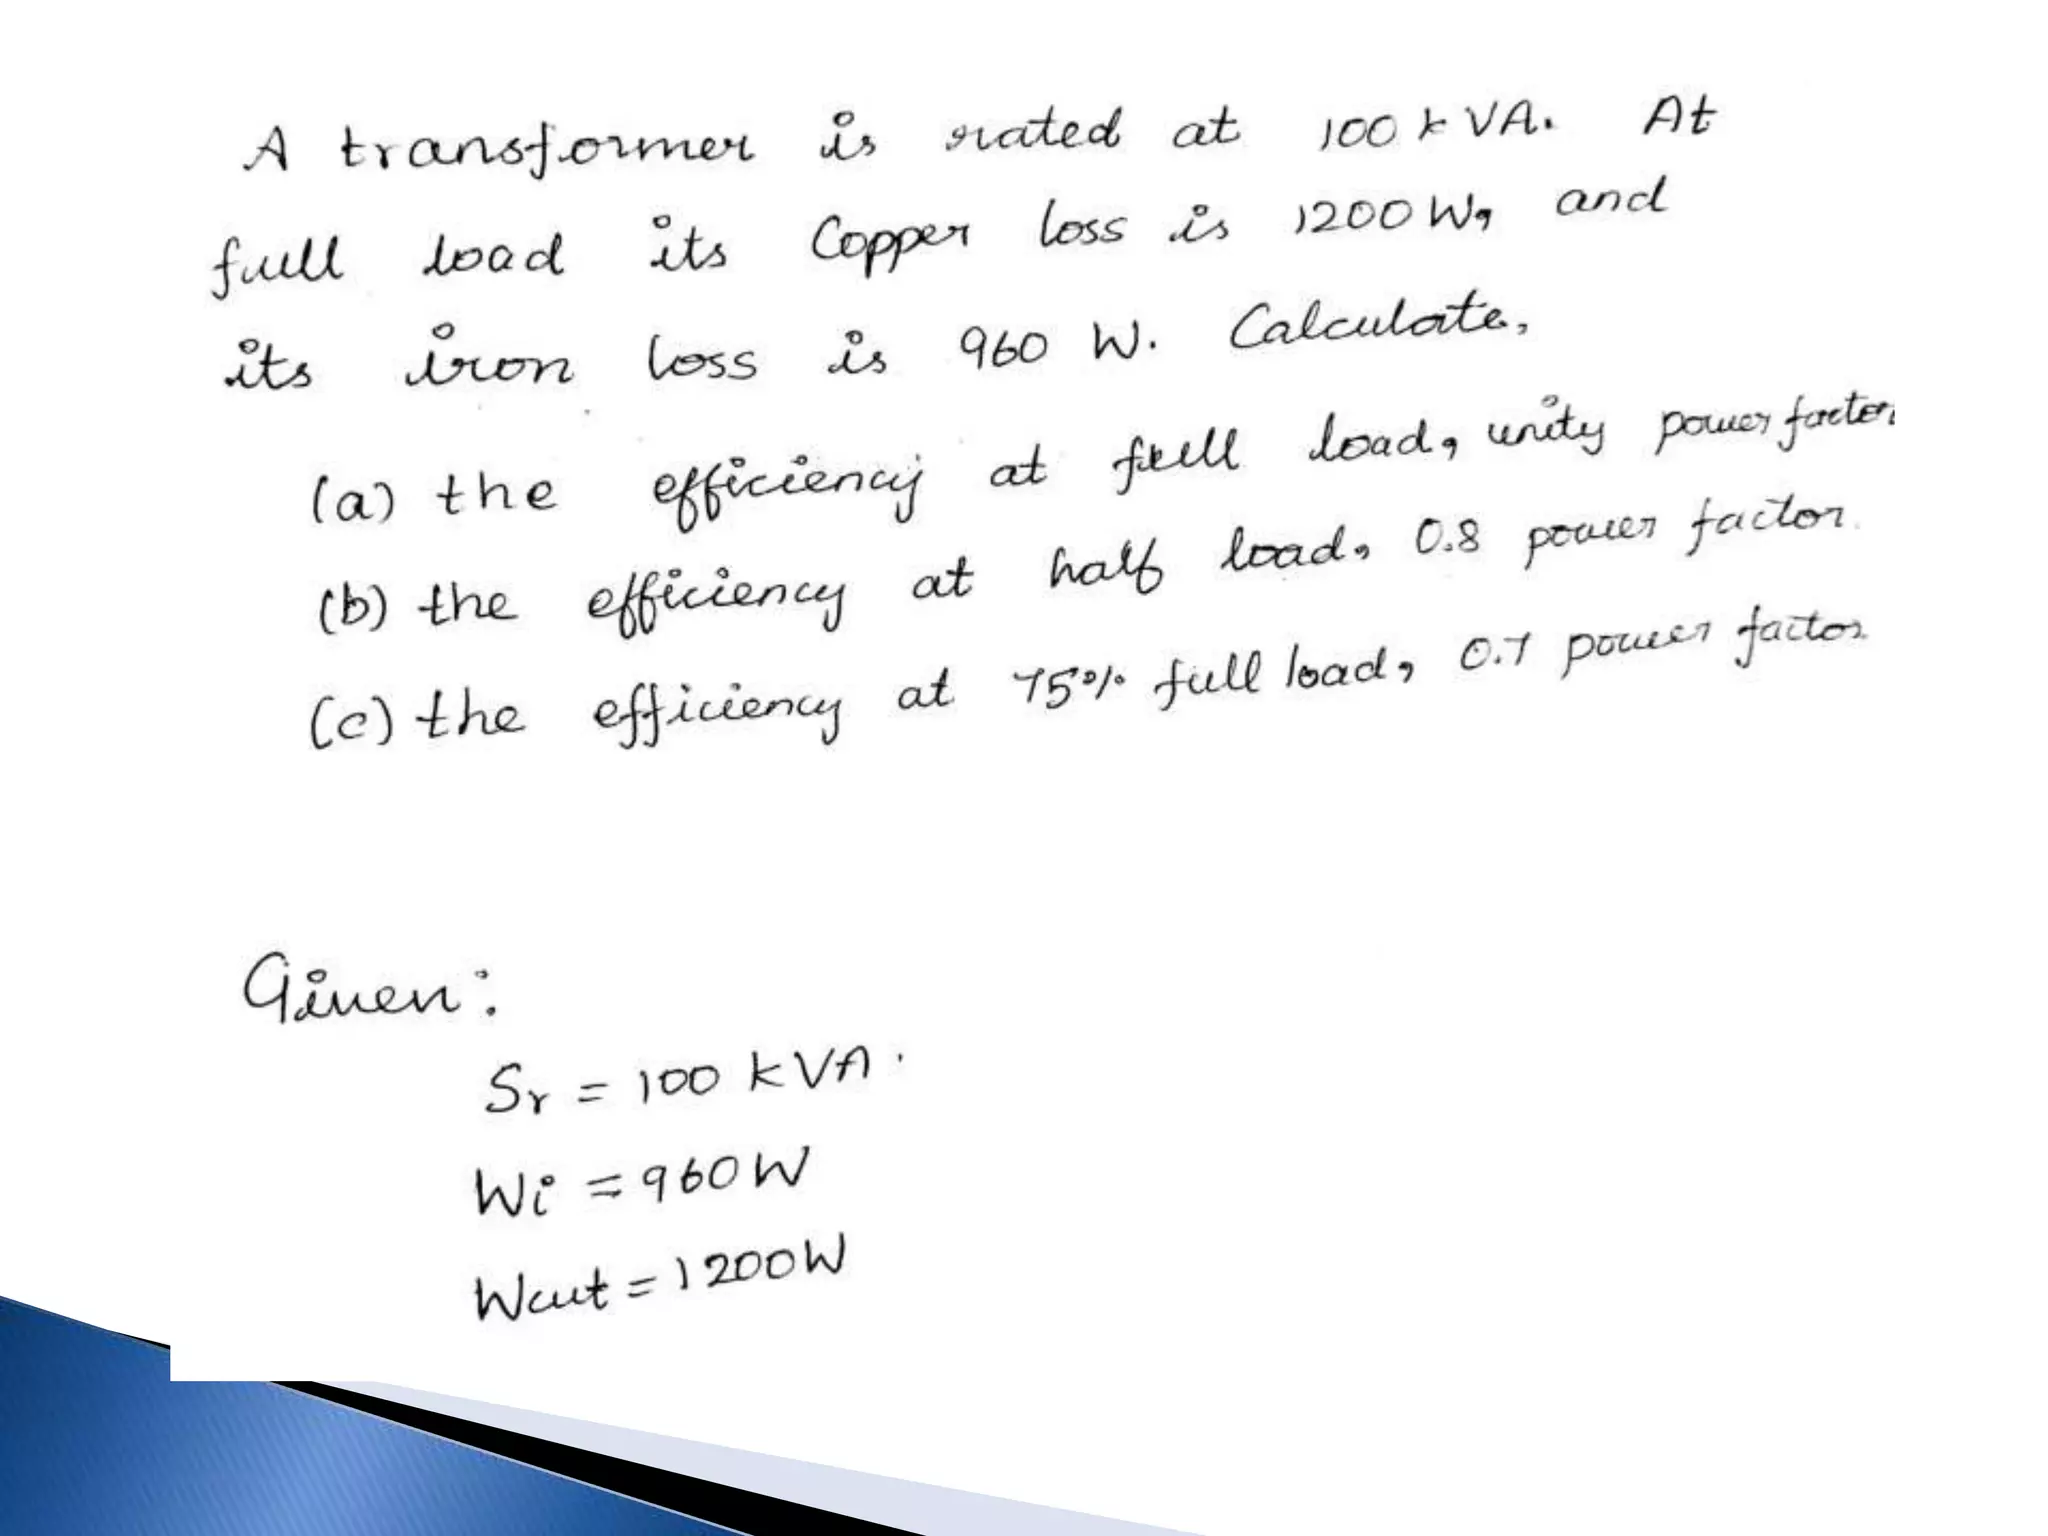 A transformer is rated at 100 kVA. At
full load its Copper loss is 1200 W, and
its iron loss is 960 W. Calculate,
(a) the efficiency at full load, unity power factor
(b) the efficiency at half load, 0.8 power factor.
(c) the efficiency at 75% full load, 0.7 power factor
Given:
Sr = 100 kVA.
Wi = 960W
Wcut = 1200W